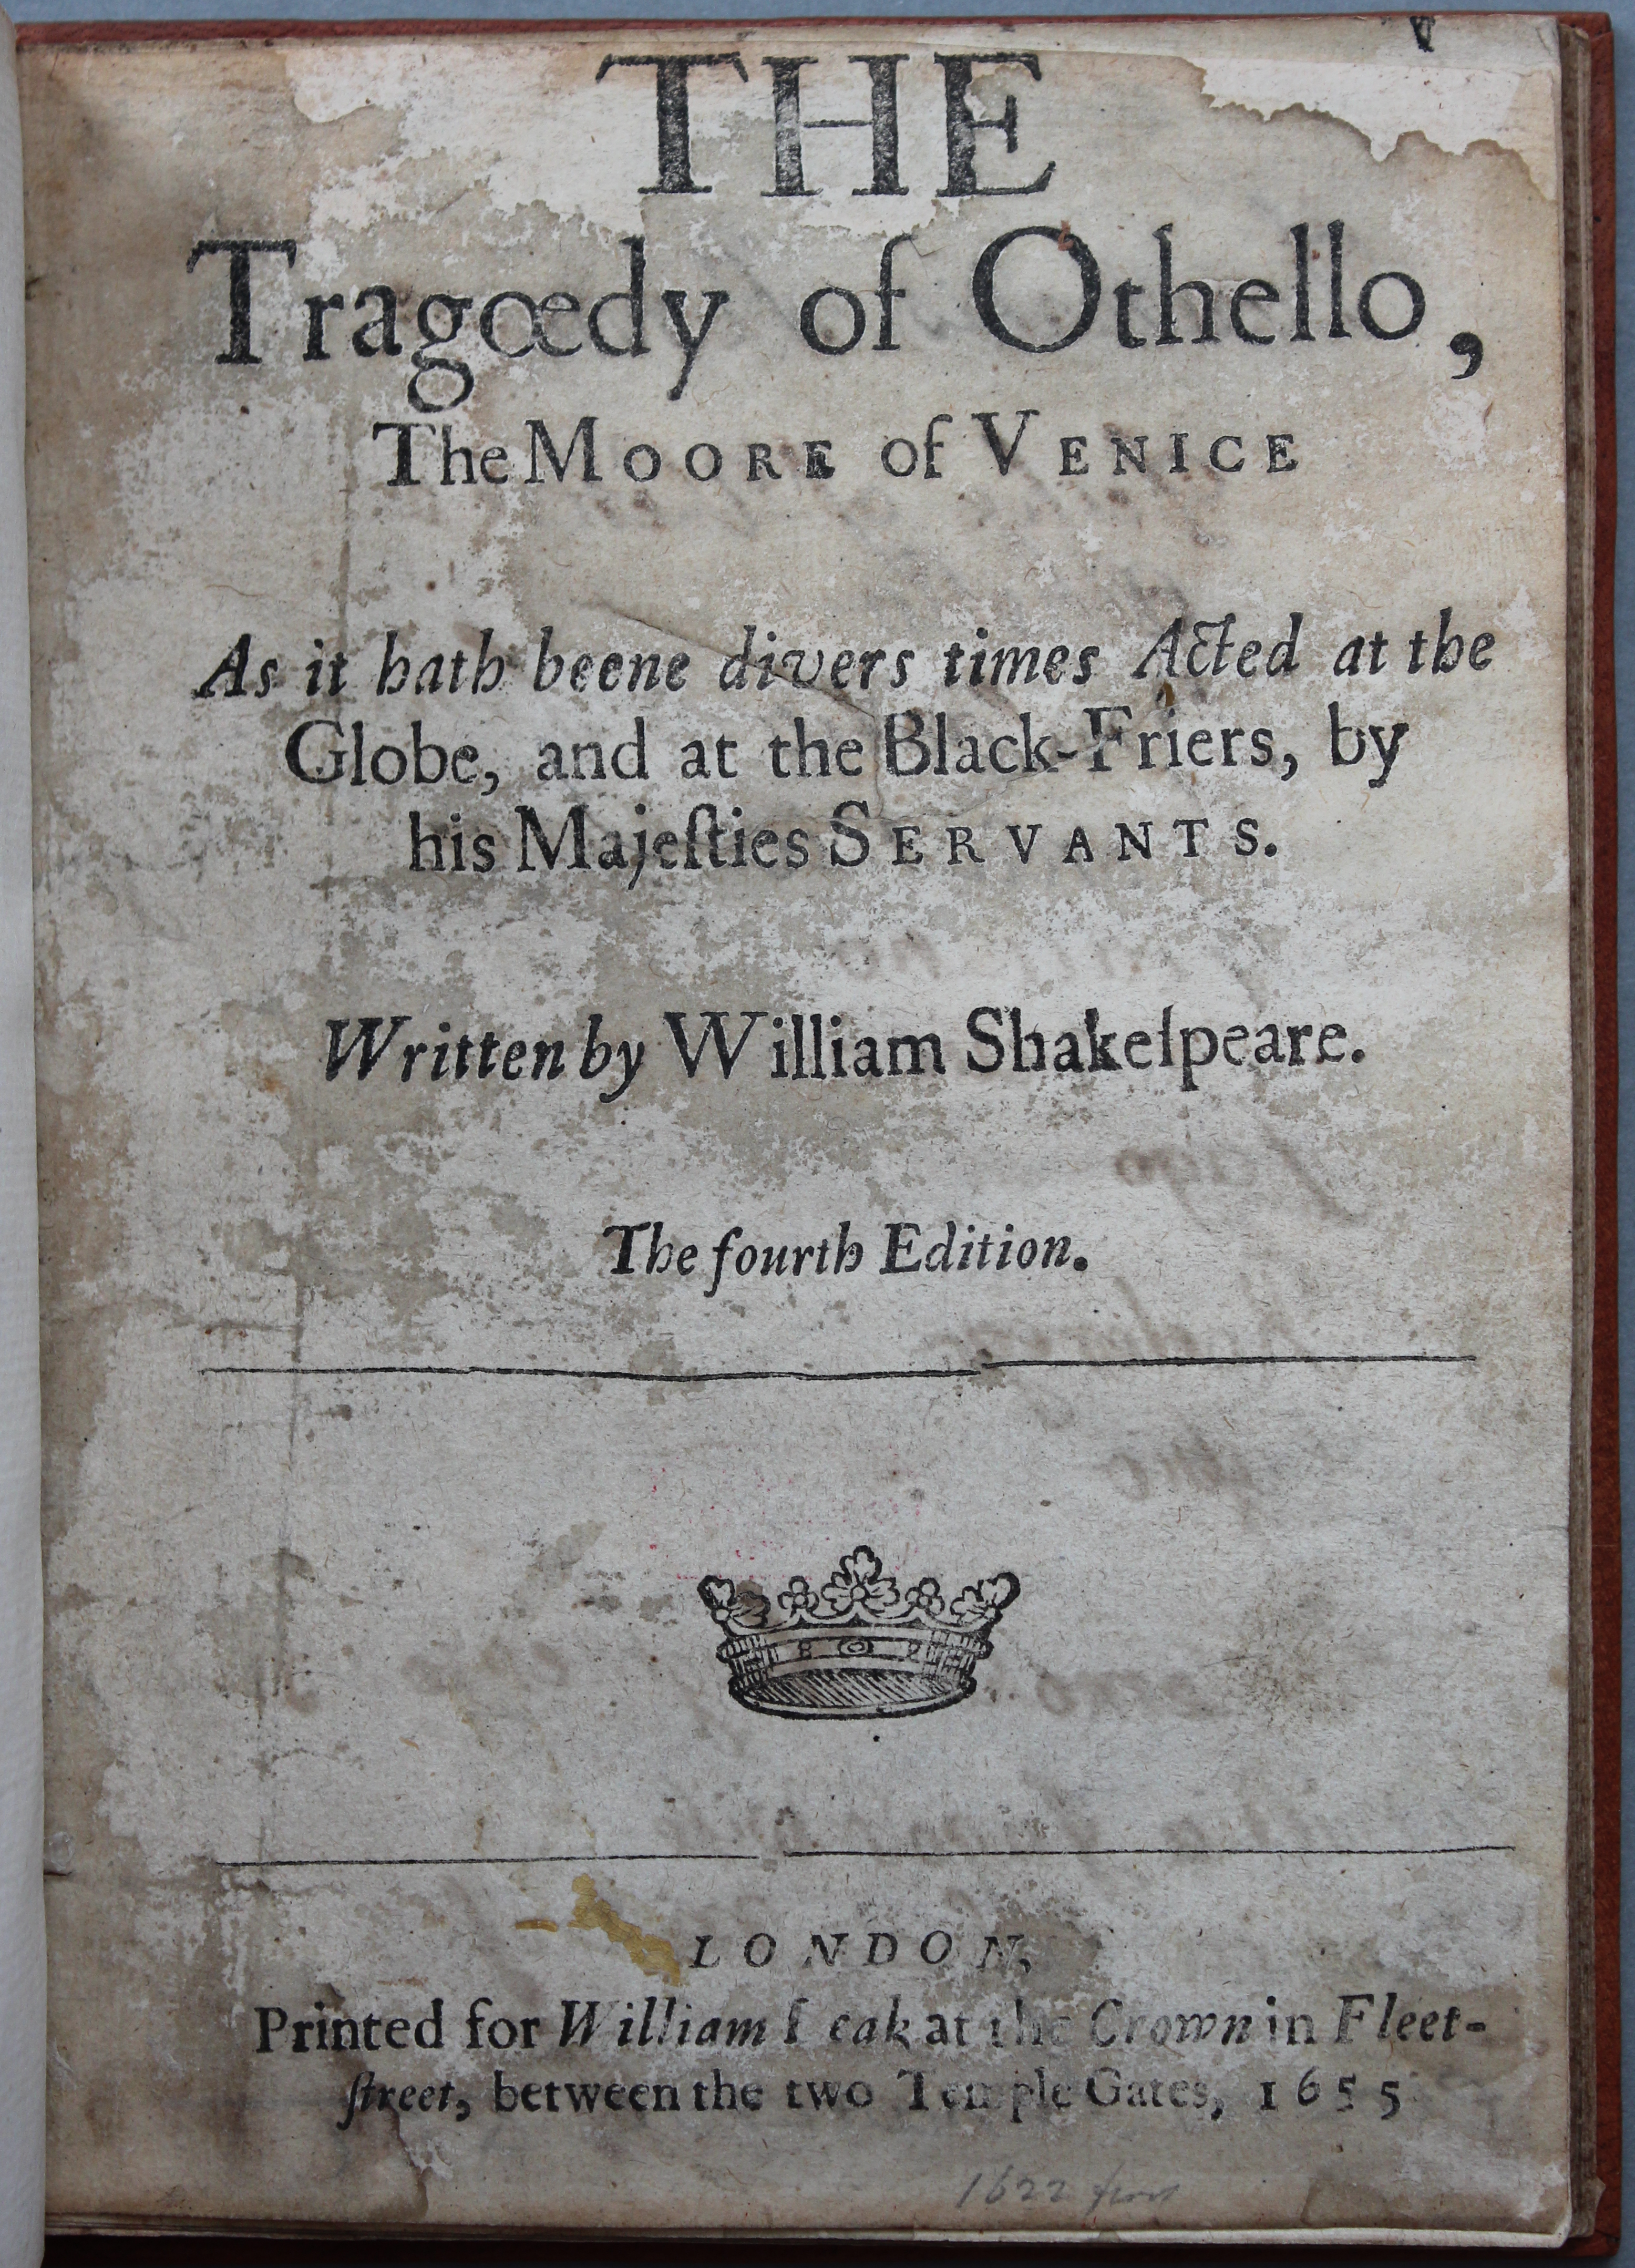 THE
Tragœdy of Othello,
The MOORE of VENICE
As it hath beene divers times Acted at the
Globe, and at the Black-Friers, by
his Majeſties SERVANTS.
Written by William Shakeſpeare.
The fourth Edition.
LONDON,
Printed for William Leak at the Crown in Fleet-
ſtreet, between the two Temple Gates, 1655
1622 first